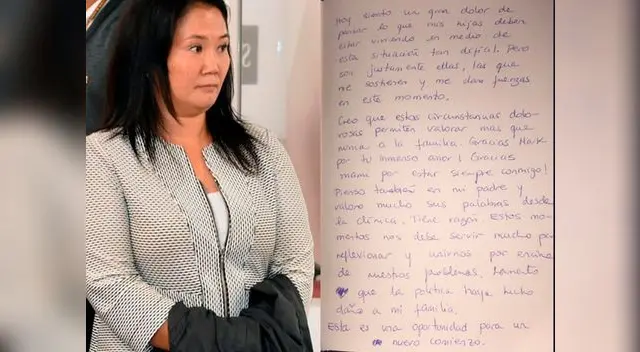 Hoy siento un gran dolor de
pensar lo que mis hijas deben
estar viviendo en medio de
esta situación tan difícil. Pero
son justamente ellas, las que
me sostienen y me dan fuerzas
en este momento.
Creo que estas circunstancias dolo-
rosas permiten valorar más que
nunca a la familia. Gracias Mark
por tu inmenso amor! Gracias
mami por estar siempre conmigo!
Pienso también en mi padre y
valoro mucho sus palabras desde
la clínica. Tiene razón. Estos mo-
mentos nos debe servir mucho para
reflexionar y unirnos por encima
de nuestros problemas. Lamento
que la política haya hecho
daño a mi familia.
Esta es una oportunidad para un
nuevo comienzo.